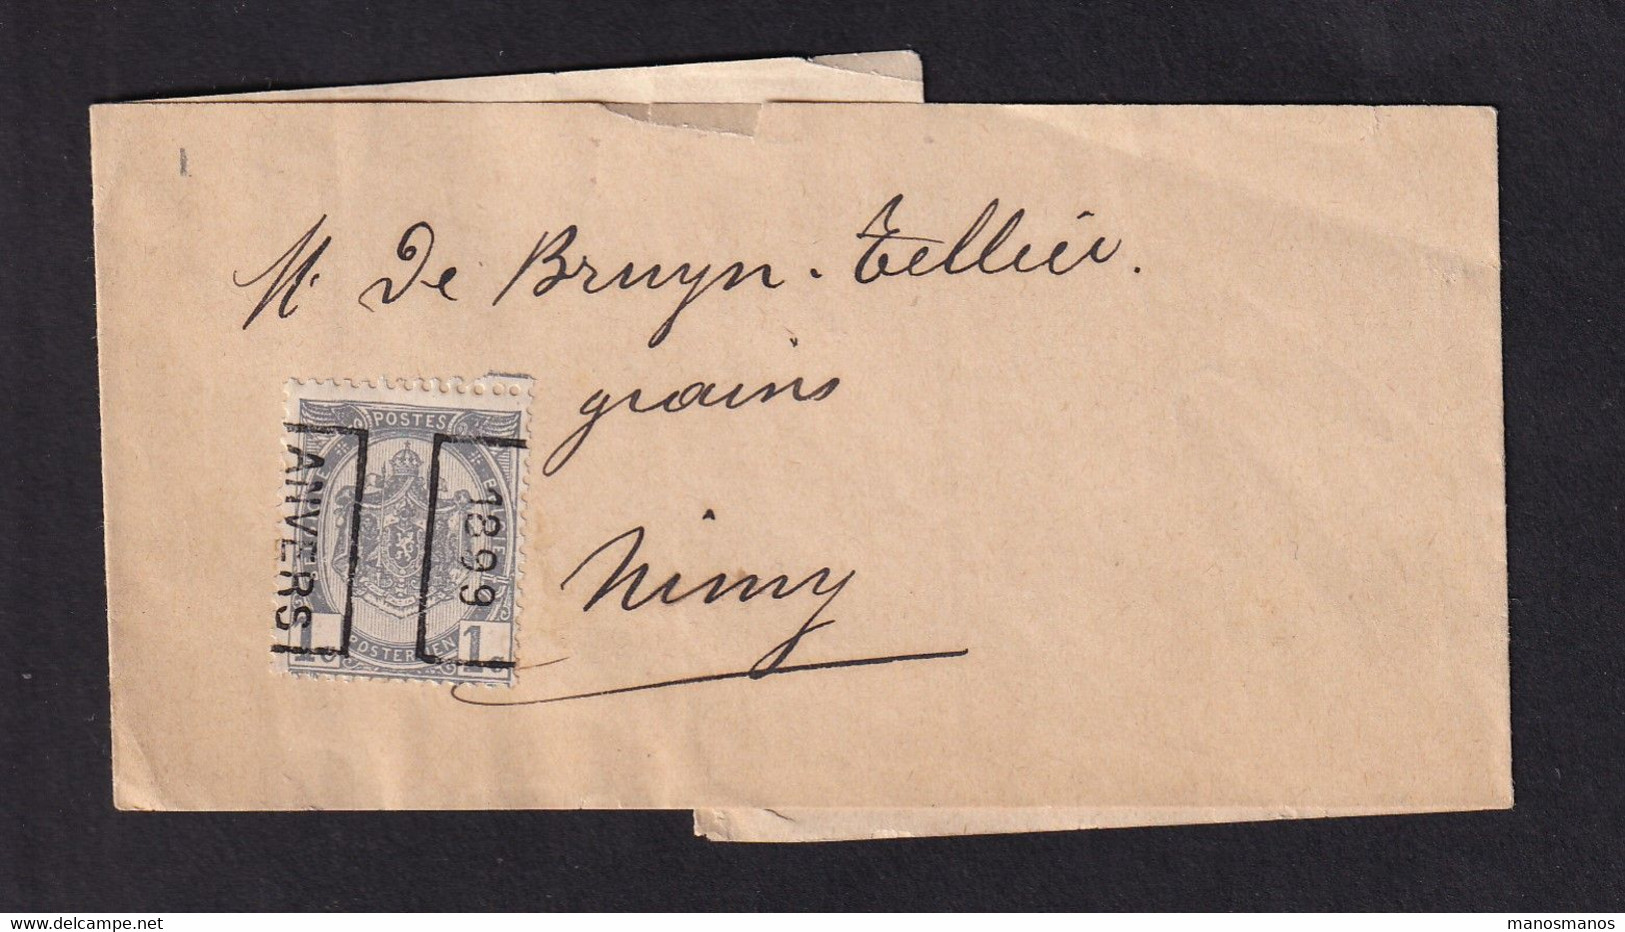 M. De Bruyn-Tellier.
grains
Nimy
POSTES
1899
ANVERS
POSTERIJEN
1c 1c
manosmanos